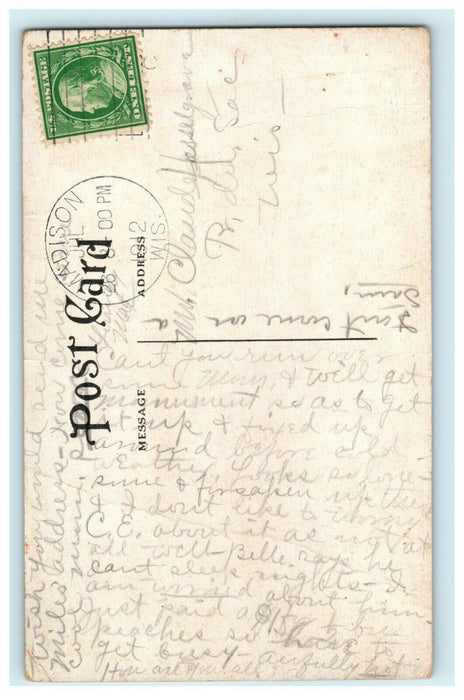 U.S. POSTAGE
ONE CENT
MADISON
JUL
26
00 PM
1912
WIS.
Post Card
ADDRESS
MESSAGE
Mr. Claude Hasselgrave
Pr. du Sac
Wis
Don't come on a
Can't you run over
some Morn, & we'll get
monument so as to get
it up & fixed up
around before cold
weather. Looks so lone-
some & forsaken up there
& I don't like to worry
C.E. about it as not at
all well - Belle says he
can't sleep nights - I
am worried about him -
Just said a
peaches so
get busy - awfully hot
How are you all
Wish you would send me
Miles address - from